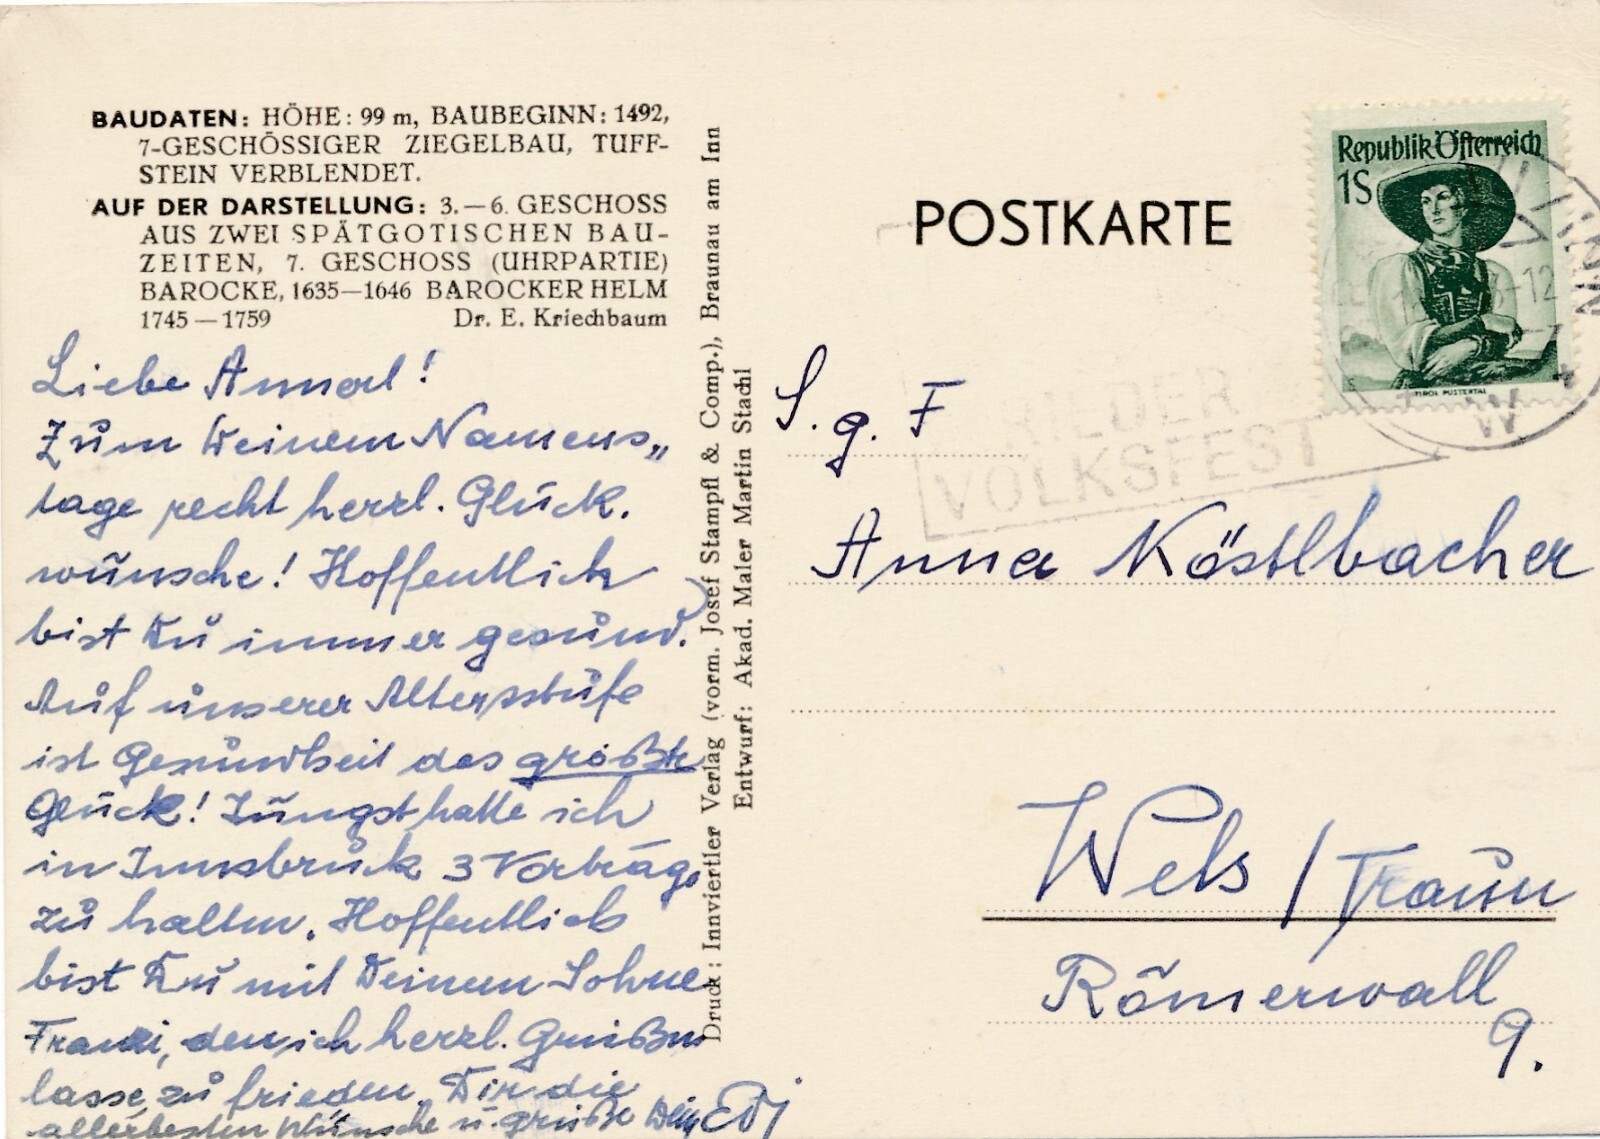 BAUDATEN: HÖHE: 99 m, BAUBEGINN: 1492,
7-GESCHÖSSIGER ZIEGELBAU, TUFF-
STEIN VERBLENDET.
AUF DER DARSTELLUNG: 3.—6. GESCHOSS
AUS ZWEI SPÄTGOTISCHEN BAU-
ZEITEN, 7. GESCHOSS (UHRPARTIE)
BAROCKE, 1635—1646 BAROCKER HELM
1745—1759 Dr. E. Kriechbaum
Liebe Annerl!
Zum Deinem Namens„
tage recht herzl. Glück.
wünsche! Hoffentlich
bist Du immer gesund.
Auf unserer Altersstufe
ist Gesundheit das größte
Glück! Jüngst hatte ich
in Innsbruck 3 Vorträge
zu halten. Hoffentlich
bist Du mit Deinem Sohne
Franzi, den ich herzl. Grüßen
lasse, zu frieden. Dir die
allerbesten Wünsche u. Grüße Dein Edi
Druck: Innviertler Verlag (vorm. Josef Stampfl & Comp.), Braunau am Inn
Entwurf: Akad. Maler Martin Stachl
POSTKARTE
Republik Österreich
1S
TIROL PUSTERTAL
8-12
RIEDER
VOLKSFEST
S. g. F
Anna Köstlbacher
Wels / Traun
Römerwall
9.